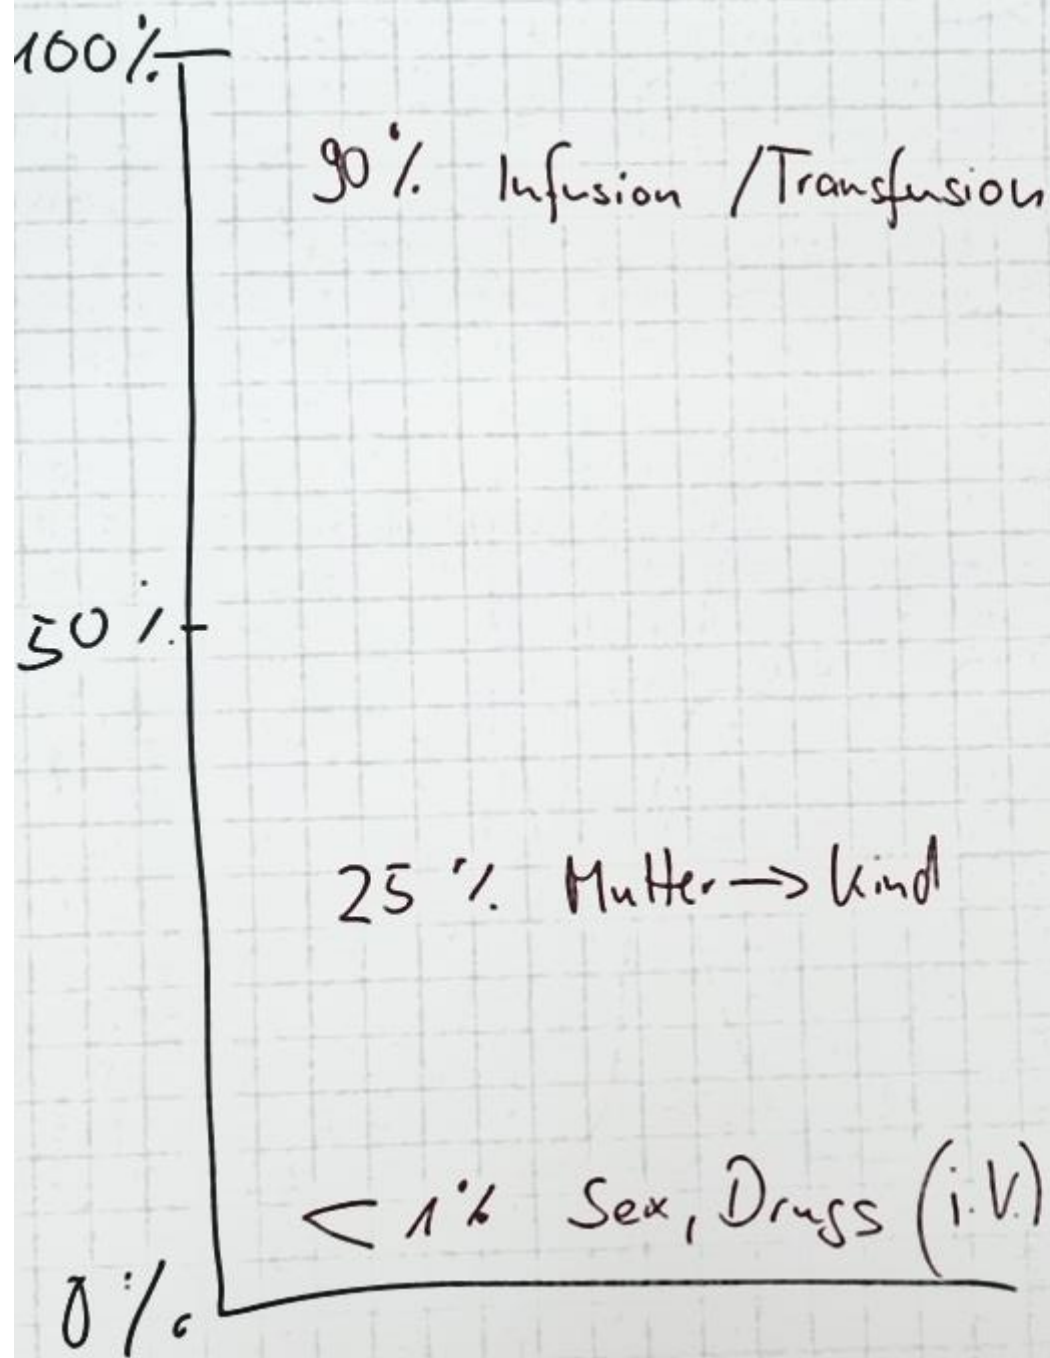 100%
90% Infusion / Transfusion
50%
25% Mutter → Kind
< 1% Sex, Drugs (i.V.)
0%